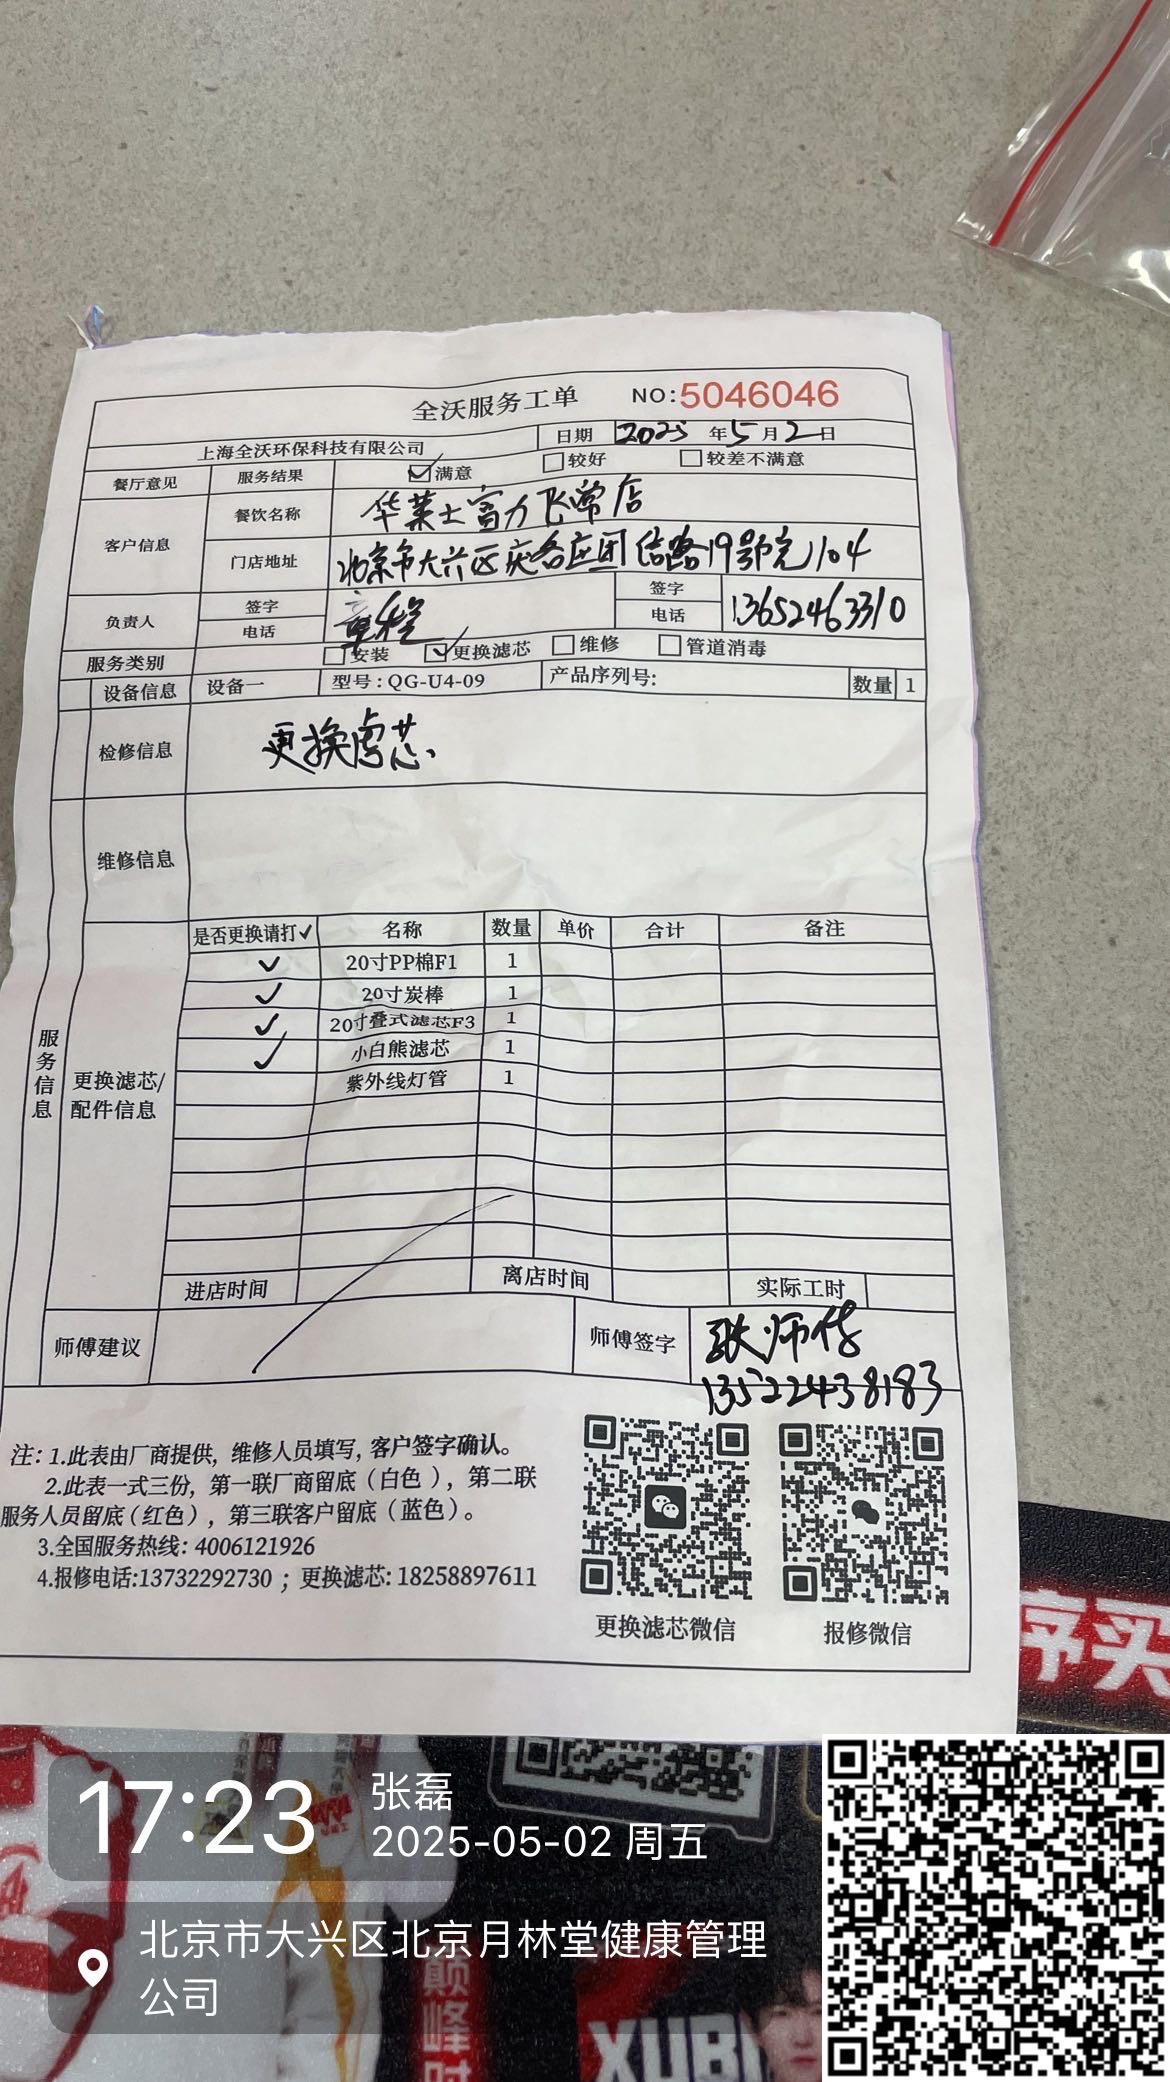 全沃服务工单 NO:5046046
上海全沃环保科技有限公司 日期 2025年5月2日
餐厅意见 服务结果 满意 较好 较差不满意
客户信息 餐饮名称 华莱士富力飞常店
门店地址 北京市大兴区庆各庄团结路19号院1104
负责人 签字 签字
电话 电话 13652463310
服务类别 安装 更换滤芯 维修 管道消毒
设备信息 设备一 型号:QG-U4-09 产品序列号: 数量 1
检修信息 更换虑芯、
维修信息
服务信息
更换滤芯/配件信息
是否更换请打✓ 名称 数量 单价 合计 备注
✓ 20寸PP棉F1 1
✓ 20寸炭棒 1
✓ 20寸叠式滤芯F3 1
✓ 小白熊滤芯 1
紫外线灯管 1
进店时间 离店时间 实际工时
师傅建议 师傅签字 张师傅
13522438183
注: 1.此表由厂商提供, 维修人员填写, 客户签字确认。
2.此表一式三份, 第一联厂商留底(白色), 第二联
服务人员留底(红色), 第三联客户留底(蓝色)。
3.全国服务热线: 4006121926
4.报修电话:13732292730 ; 更换滤芯: 18258897611
更换滤芯微信 报修微信
17:23 张磊
2025-05-02 周五
北京市大兴区北京月林堂健康管理
公司
巅峰时
XUBI